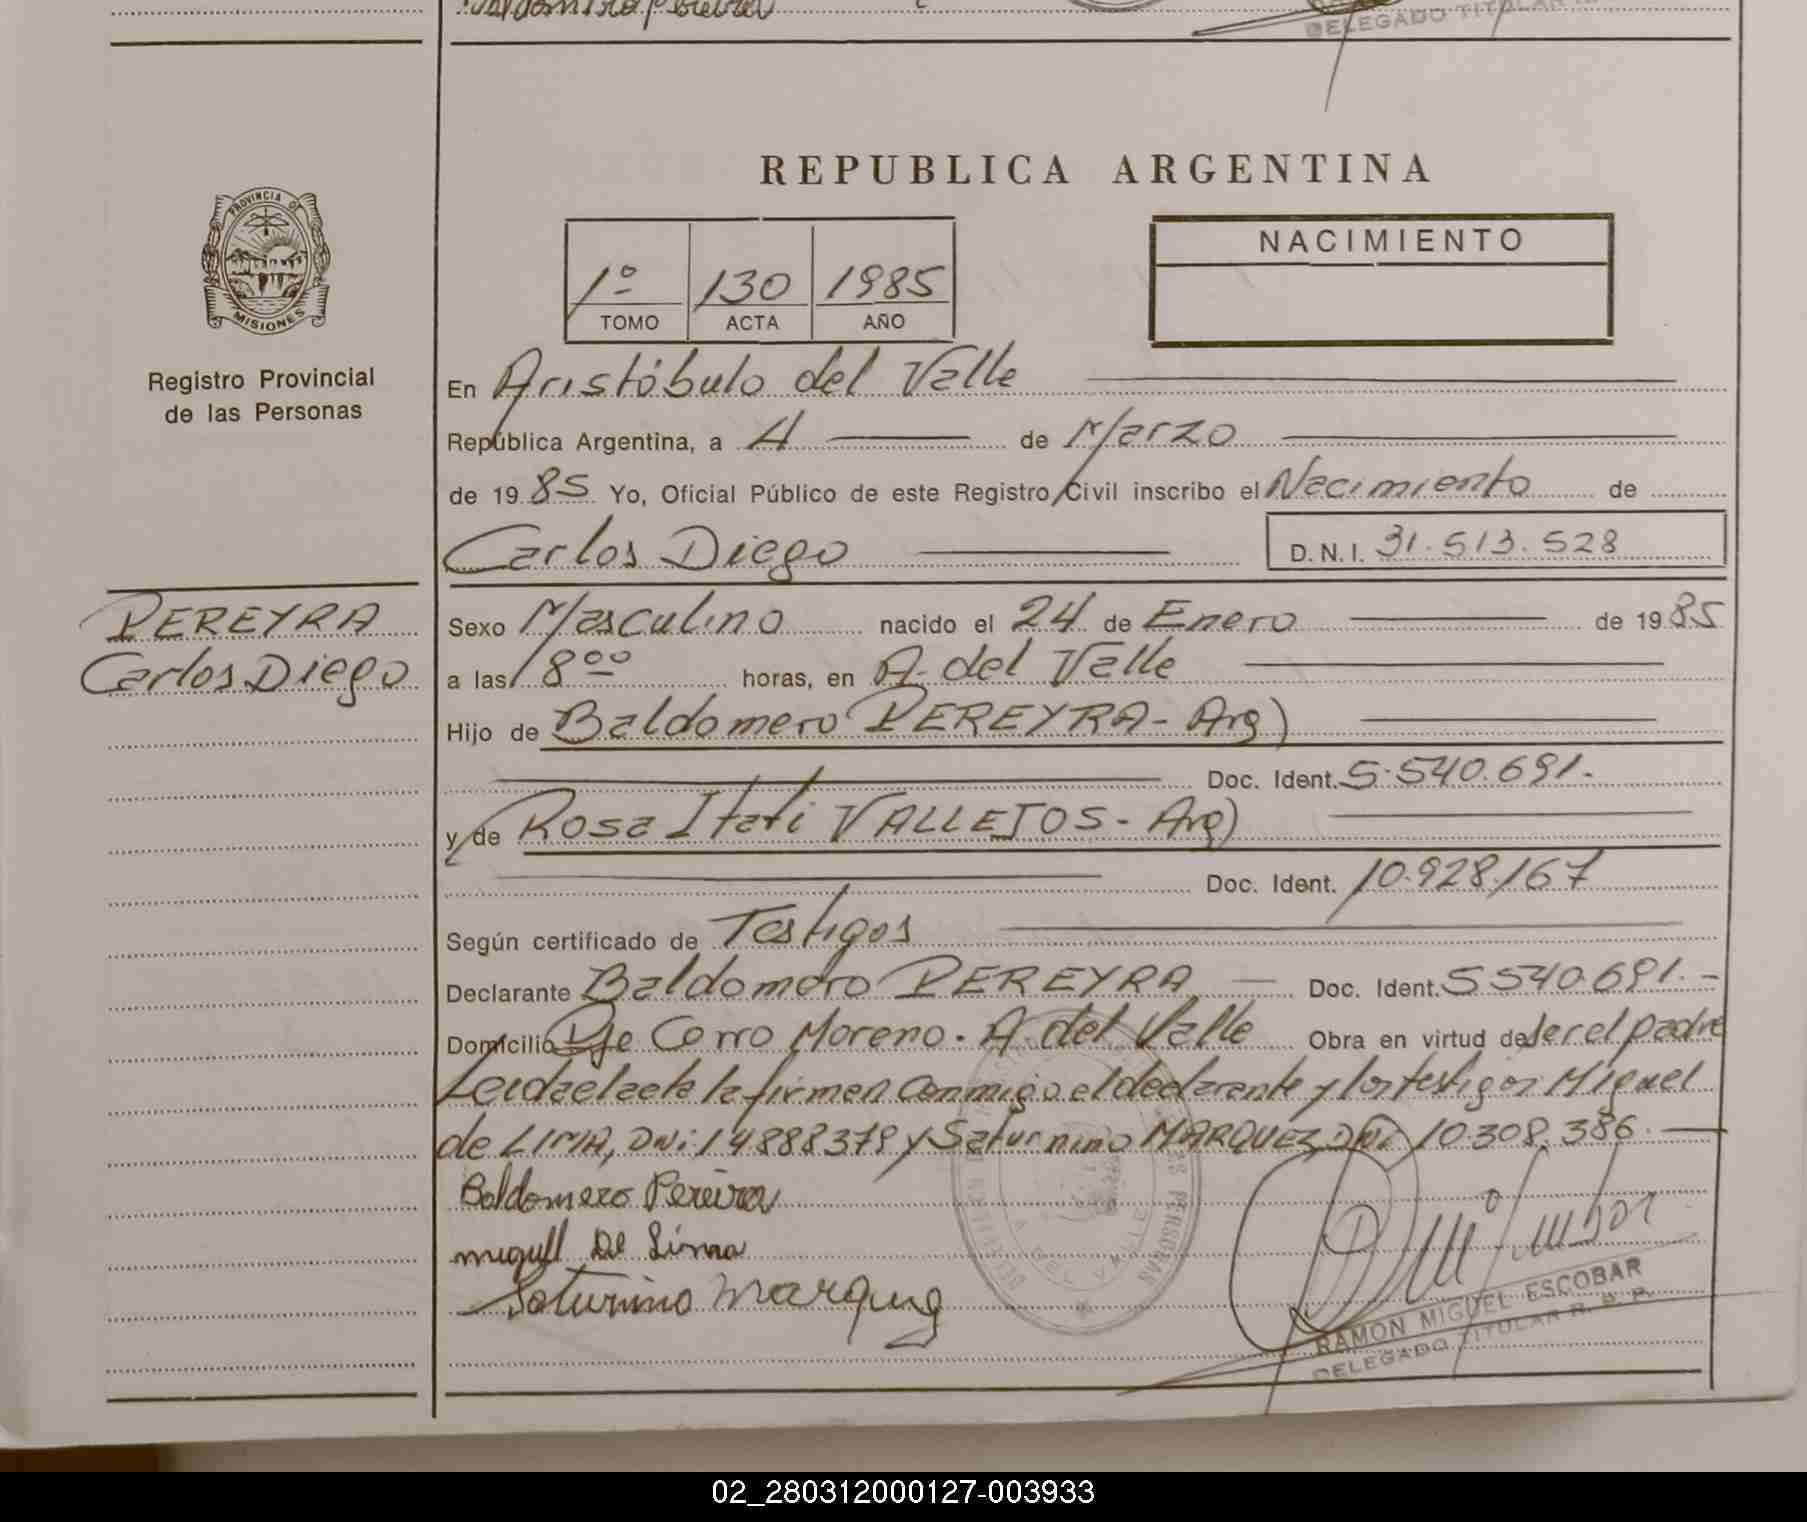 Baldomero Pereira
DELEGADO TITULAR
REPUBLICA ARGENTINA
PROVINCIA DE
MISIONES
Registro Provincial
de las Personas
1º 130 1985
TOMO ACTA AÑO
NACIMIENTO
En Aristóbulo del Valle
República Argentina, a 4 de Marzo
de 1985 Yo, Oficial Público de este Registro Civil inscribo el Nacimiento de
Carlos Diego D.N.I. 31.513.528
PEREYRA
Carlos Diego
Sexo Masculino nacido el 24 de Enero de 1985
a las 18⁰⁰ horas, en A. del Valle
Hijo de Baldomero PEREYRA - Arg)
Doc. Ident. 5.540.691.
y de Rosa Itati VALLEJOS - Arg)
Doc. Ident. 10.928.167
Según certificado de Testigos
Declarante Baldomero PEREYRA — Doc. Ident. 5540.691.-
Domicilio Pje Cerro Moreno. A. del Valle Obra en virtud de ser el padre
Leida el acta la firman conmigo el declarante y los testigos Miguel
de LIMA, DNI: 14888379 y Saturnino MARQUEZ DNI 10.308.386.—
Baldomero Pereira
miguel De Lima
Saturnino Marquez
RAMON MIGUEL ESCOBAR
DELEGADO TITULAR R. P. P.
02_280312000127-003933